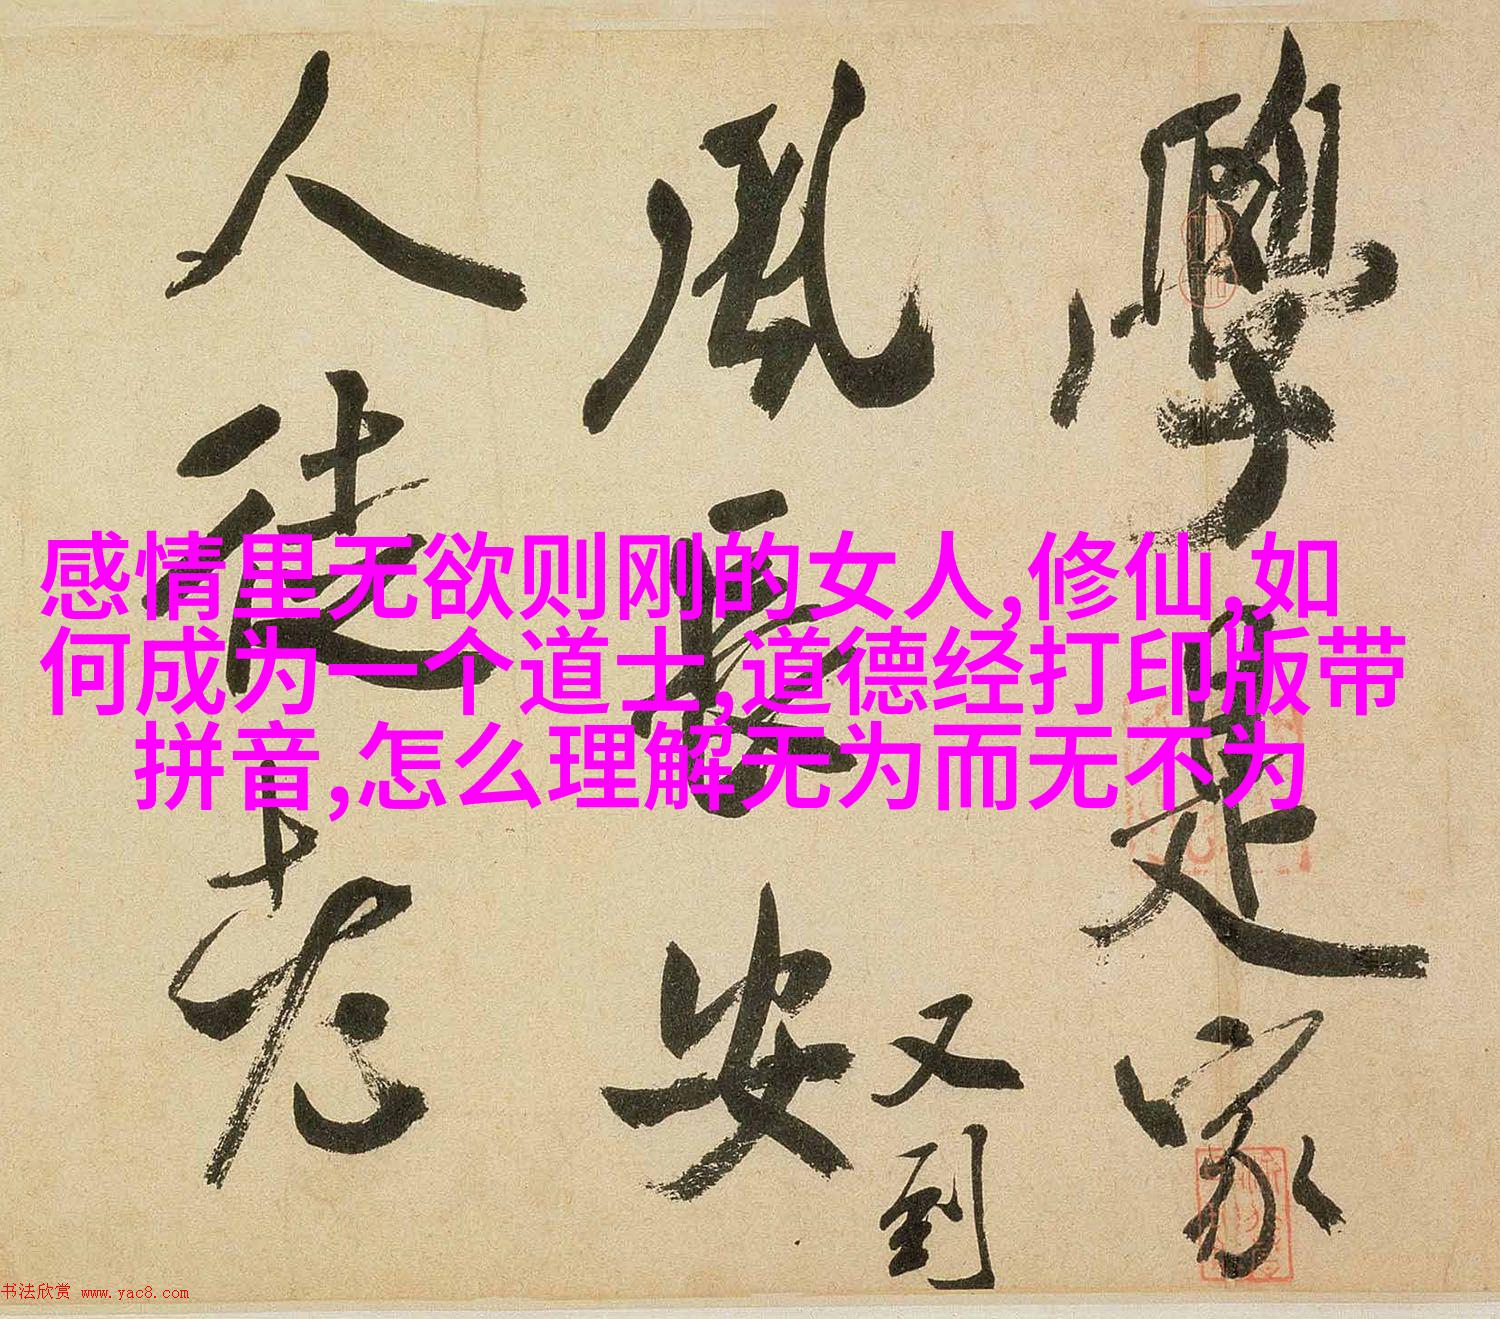 學是家
風長安又到
人徒老
感情里无欲则刚的女人,修仙,如
何成为一个道士,道德经打印版带
拼音,怎么理解无为而无不为
书法欣赏 www.yac8.com